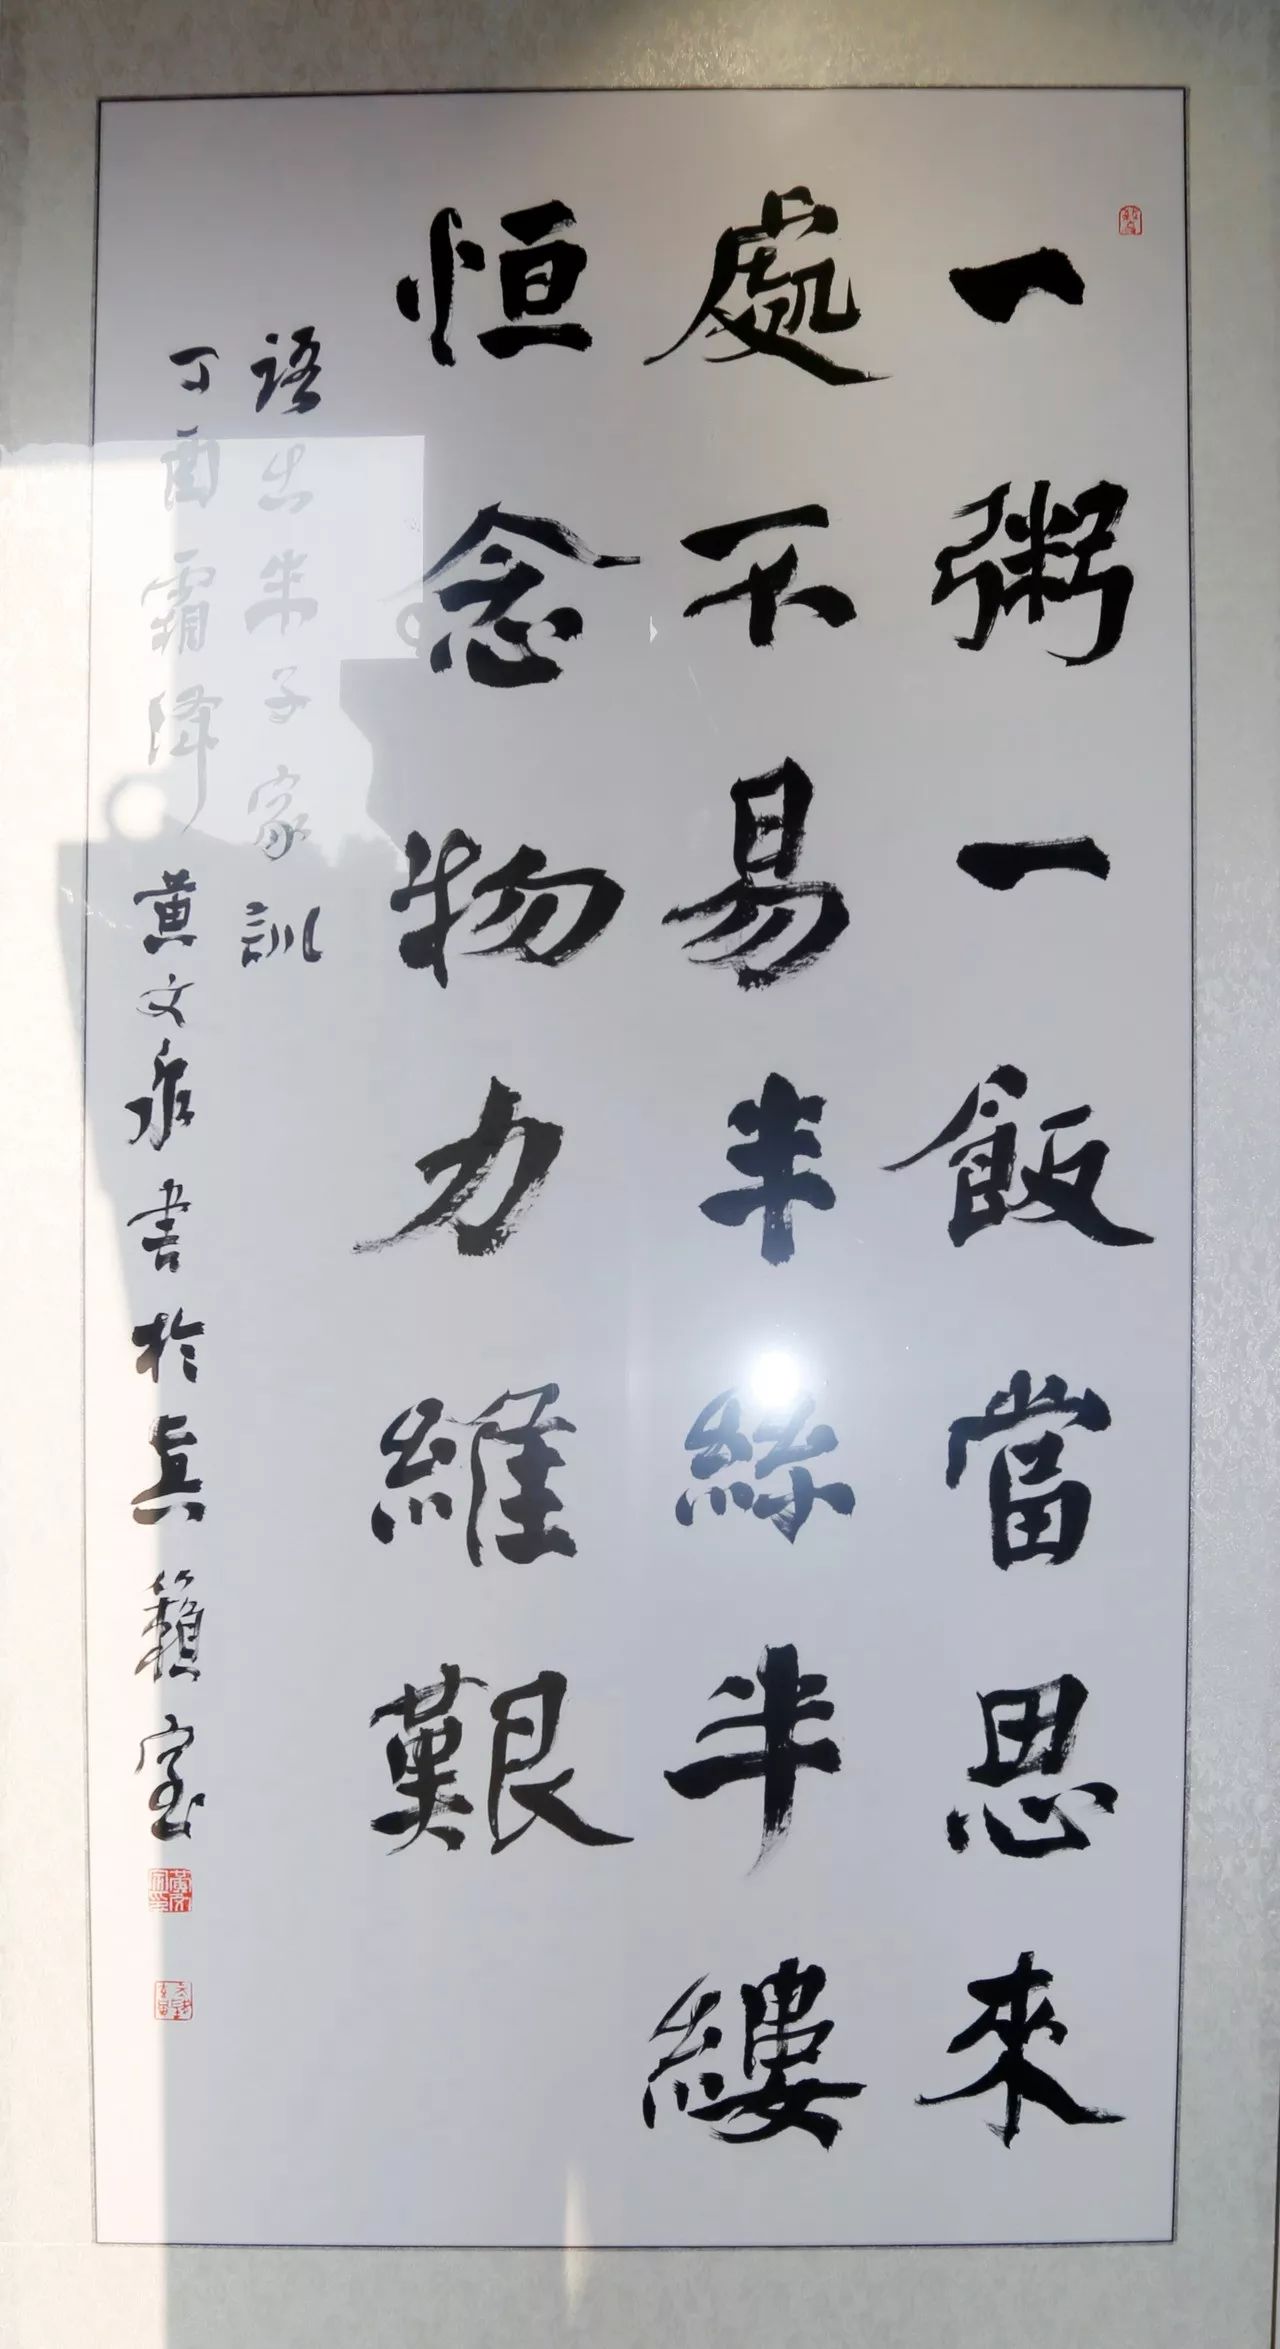 一粥一飯當思來
處不易半絲半縷
恒念物力維艱
語出朱子家訓
丁酉霜降黄文泉書於真籟室